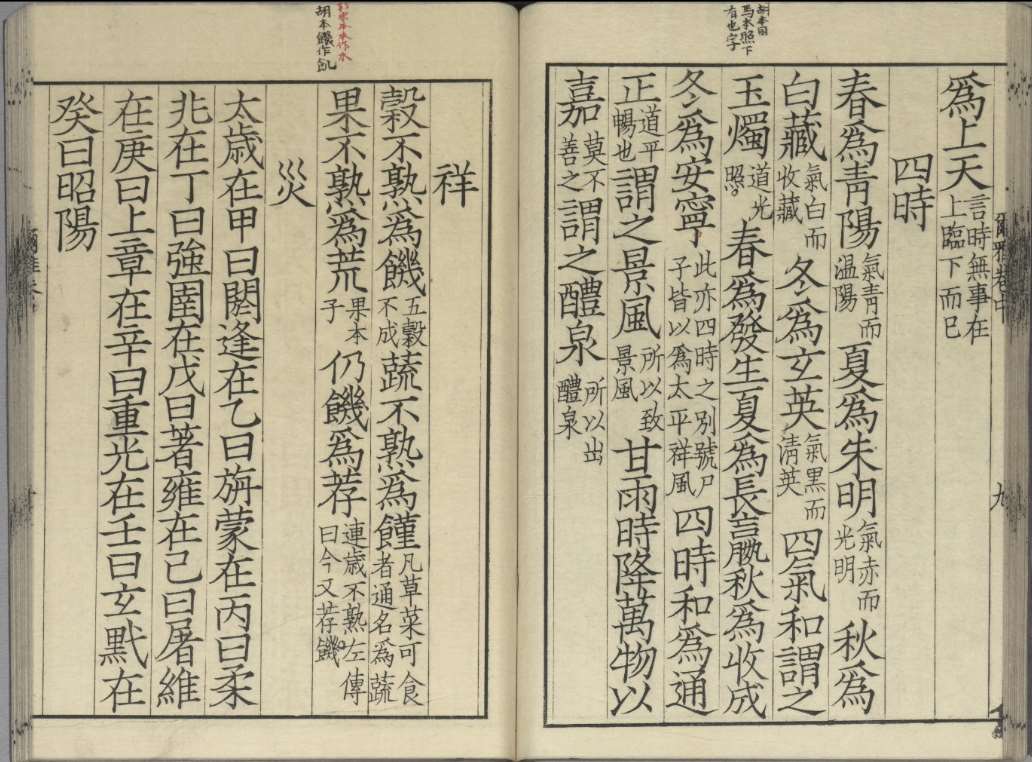 胡本因
馬本照下
有也字
爲上天言時無事在上臨下而已
四時
春爲青陽氣青而温陽夏爲朱明氣赤而光明秋爲
白藏氣白而收藏冬爲玄英氣黑而清英四氣和謂之
玉燭道光照春爲發生夏爲長嬴秋爲收成
冬爲安寧此亦四時之别號尸子皆以爲太平祥風四時和爲通
正道平暢也謂之景風所以致景風甘雨時降萬物以
嘉莫不善之謂之醴泉所以出醴泉
爾雅卷中
九
胡本饑作飢
祥
穀不熟爲饑五穀不成蔬不熟爲饉凡草菜可食者通名爲蔬
果不熟爲荒果木子仍饑爲荐連歲不熟左傳曰今又荐饑
災
太歲在甲曰閼逢在乙曰旃蒙在丙曰柔
兆在丁曰強圉在戊曰著雍在己曰屠維
在庚曰上章在辛曰重光在壬曰玄黓在
癸曰昭陽